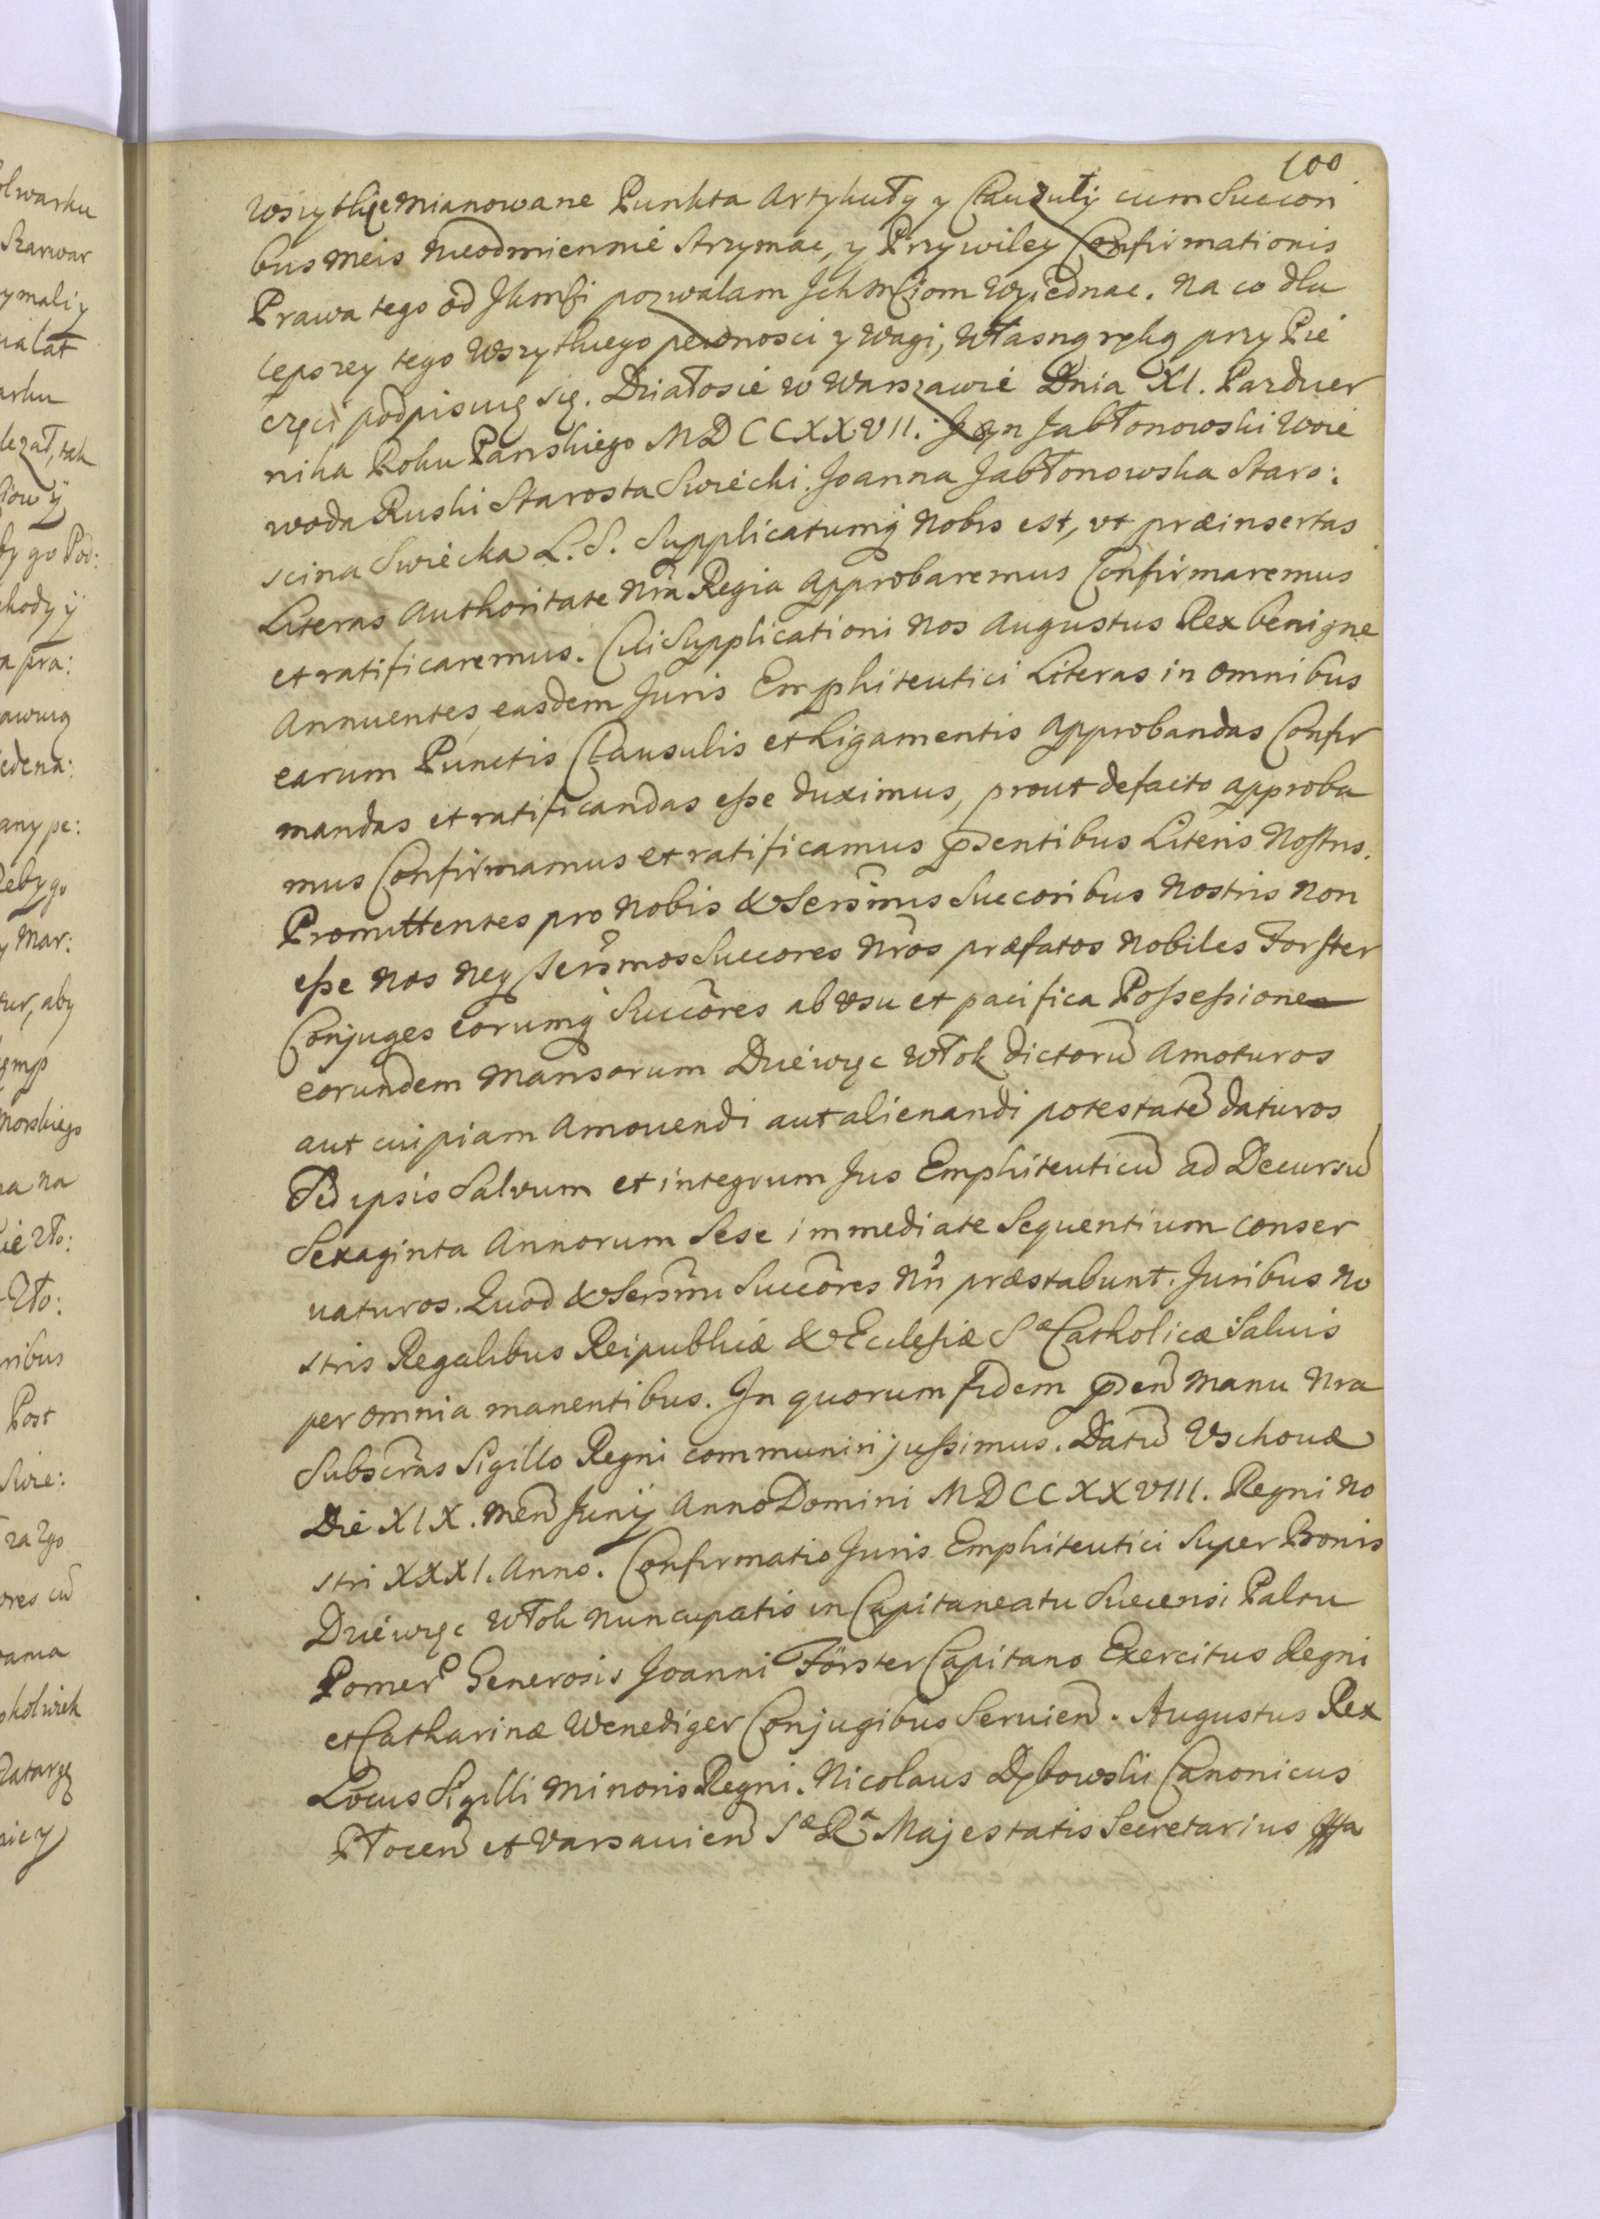 100
wszytkie mianowane Punkta Artykuły y Clauzuly cum Succori
bus meis nieodmiennie strzymac, y Przywiley Confirmationis
Prawa tego od JKmści pozwalam Jch Mściom wyiednac. Na co dla
lepszey tego wszytkiego pewnosci y wagi, własną ręką przy Pie
częci podpisuię się. Działosie w Warszawie Dnia XI. Pazdzier
nika Roku Panskiego MDCCXXVII. Jan Jabłonowski Woie
woda Ruski Starosta Swiecki. Joanna Jabłonowska Staro:
scina Swiecka L. S. Supplicatumq nobis est, vt præinsertas
Literas Authoritate Nra Regia approbaremus Confirmaremus
et ratificaremus. Cui Supplicationi nos Augustus Rex benigne
Annuentes, easdem Juris Emphiteutici Literas in omnibus
earum Punctis Clausulis et Ligamentis approbandas Confir
mandas et ratificandas esse duximus, prout defacto approba
mus Confirmamus et ratificamus pntibus Literis Nostris.
Promittentes pro Nobis & Sersmis Succoribus Nostris non
esse nos neq Sersmos Succores Nros præfatos Nobiles Forster
Conjuges eorumq Succores ab vsu et pacifica Possessione
eorundem Mansorum Dziewięc Włok dictoru Amoturos
aut cuipiam Amouendi aut alienandi potestate daturos
Sed ipsis Salvum et integrum Jus Emphiteuticu ad Decursu
Sexaginta Annorum Sese immediate Sequentium conser
uaturos. Quod & Sersmi Succores Nri præstabunt. Juribus No
stris Regalibus Reipublicæ & Ecclesiæ Sæ Catholicæ Saluis
per omnia manentibus. In quorum fidem pren Manu Nra
Subscras Sigillo Regni communiri jussimus. Datu Vschouæ
Die XIX. Men Junij Anno Domini MDCCXXVIII. Regni No
stri XXXI. Anno. Confirmatio Juris Emphiteutici Super Bonis
Dziewięc Włok nuncupatis in Capitaneatu Suecensi Palatu
Pomer. Generosis Joanni Förster Capitano Exercitus Regni
et Catharinæ Wenediger Conjugibus Seruien. Augustus Rex
Locus Sigilli Minoris Regni. Nicolaus Dębowski Canonicus
Płocen et Varsauien Sæ Ræ Majestatis Secretarius